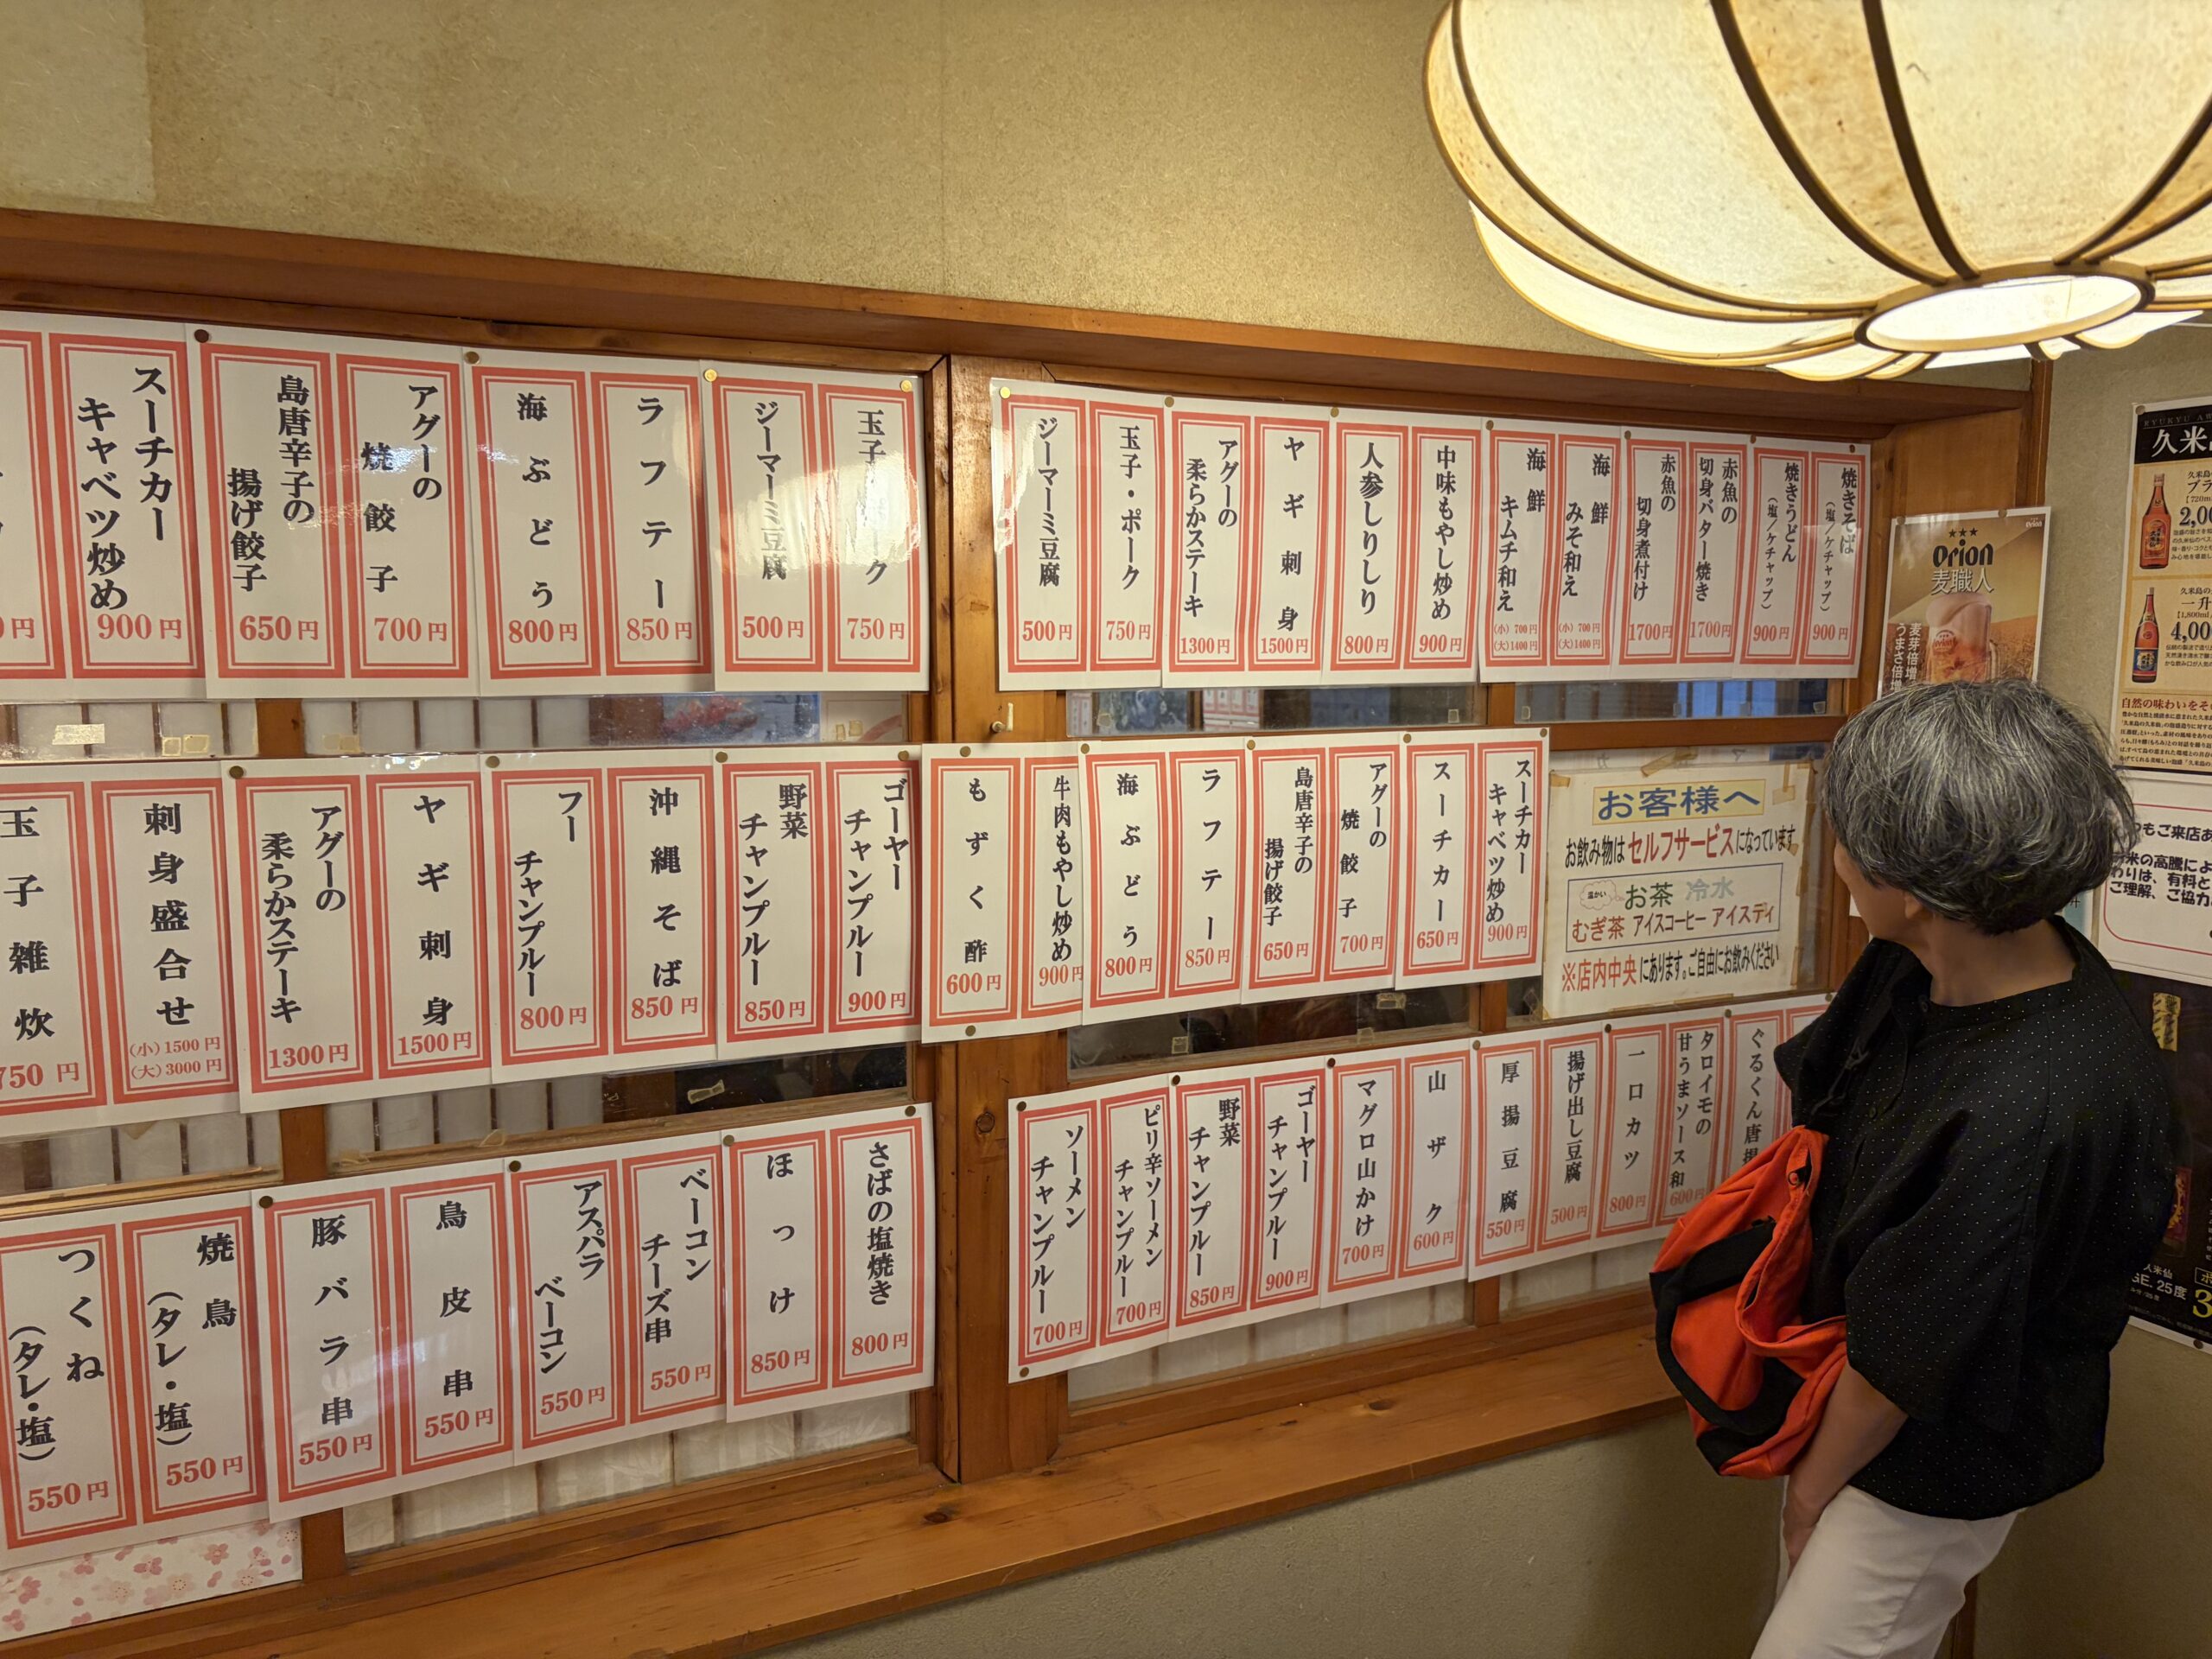 スーチカー
キャベツ炒め
900円
島唐辛子の
揚げ餃子
650円
アグーの
焼餃子
700円
海ぶどう
800円
ラフテー
850円
ジーマーミ豆腐
500円
玉子
ク
750円
ジーマーミ豆腐
500円
玉子・ポーク
750円
アグーの
柔らかステーキ
1300円
ヤギ刺身
1500円
人参しりしり
800円
中味もやし炒め
900円
海鮮
キムチ和え
(小) 700円
(大)1400円
海鮮
みそ和え
(小) 700円
(大)1400円
赤魚の
切身煮付け
1700円
赤魚の
切身バター焼き
1700円
焼きうどん
(塩/ケチャップ)
900円
焼きそば
(塩/ケチャップ)
900円
玉子雑炊
750円
刺身盛合せ
(小)1500円
(大)3000円
アグーの
柔らかステーキ
1300円
ヤギ刺身
1500円
フー
チャンプルー
800円
沖縄そば
850円
野菜
チャンプルー
850円
ゴーヤー
チャンプルー
900円
もずく酢
600円
牛肉もやし炒め
900円
海ぶどう
800円
ラフテー
850円
島唐辛子の
揚げ餃子
650円
アグーの
焼餃子
700円
スーチカー
650円
スーチカー
キャベツ炒め
900円
お客様へ
お飲み物はセルフサービスになっています
温かい
お茶 冷水
むぎ茶 アイスコーヒー アイスティ
※店内中央にあります。ご自由にお飲みください
つくね
(タレ・塩)
550円
焼鳥
(タレ・塩)
550円
豚バラ串
550円
鳥皮串
550円
アスパラ
ベーコン
550円
ベーコン
チーズ串
550円
ほっけ
850円
さばの塩焼き
800円
ソーメン
チャンプルー
700円
ピリ辛ソーメン
チャンプルー
700円
野菜
チャンプルー
850円
ゴーヤー
チャンプルー
900円
マグロ山かけ
700円
山ザク
600円
厚揚豆腐
550円
揚げ出し豆腐
500円
一口カツ
800円
タロイモの
甘うまソース和
600円
ぐるくん唐揚
Orion
麦職人
麦芽倍増
うまさ倍増
久米
2,00
一升
4,000
自然の味わいをその
もご来店あ
米の高騰によ
わりは、有料と
ご理解、ご協力
久米仙
25度